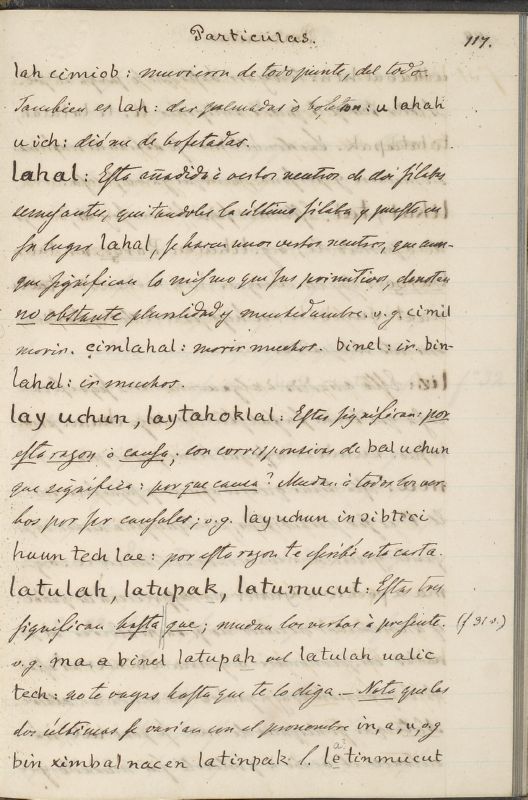 Particulas.
117.
lah cimiob: murieron de todo punto, del todo.
Tambien es lah: dar palmadas ò bofeton: u lahah
u ich: dióme de bofetadas.
lahal: Esta añadida à verbos neutros de dos sílabas
semejantes, quitandoles la última sílaba y puesta en
su lugar lahal, se hacen unos verbos neutros, que aun-
que significan lo mismo que sus primitivos, denotan
no obstante pluralidad y muchedumbre. v.g. cimil
morir. cimlahal: morir muchos. binel: ir. bin-
lahal: ir muchos.
lay uchun, laytahoklal: Estas significan: por
esta razon ò causa; son corresponsivas de bal uchun
que significa: por que causa? Mudan à todos los ver-
bos por ser causales; v.g. lay uchun in ɔibtici
huun tech lae: por esta razon te escribí esta carta.
latulah, latupak, latumucut: Estas tres
significan hasta que; mudan los verbos à presente. (f 31 v.)
v.g. ma a binel latupah vel latulah ualic
tech: no te vayas hasta que te lo diga. – Nota que las
dos últimas se varian con el pronombre in, a, u, v.g
bin ximbalnacen latinpak l. letinmucut
a